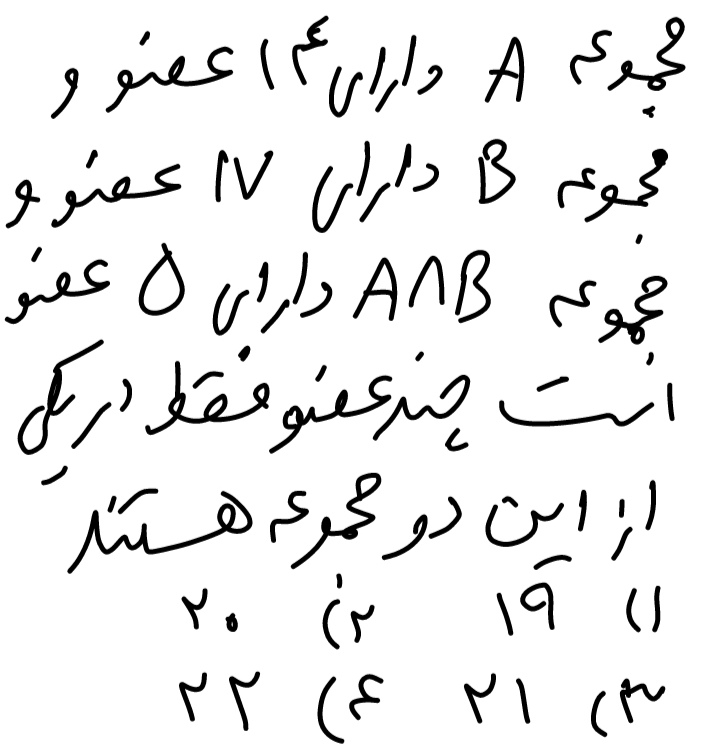 مجموعه A دارای ۱۴ عضو و
مجموعه B دارای ۱۷ عضو و
مجموعه A∩B دارای ۵ عضو
است چند عضو فقط در یکی
از این دو مجموعه هستند
۱) ۱۹ ۲) ۲۰
۳) ۲۱ ۴) ۲۲